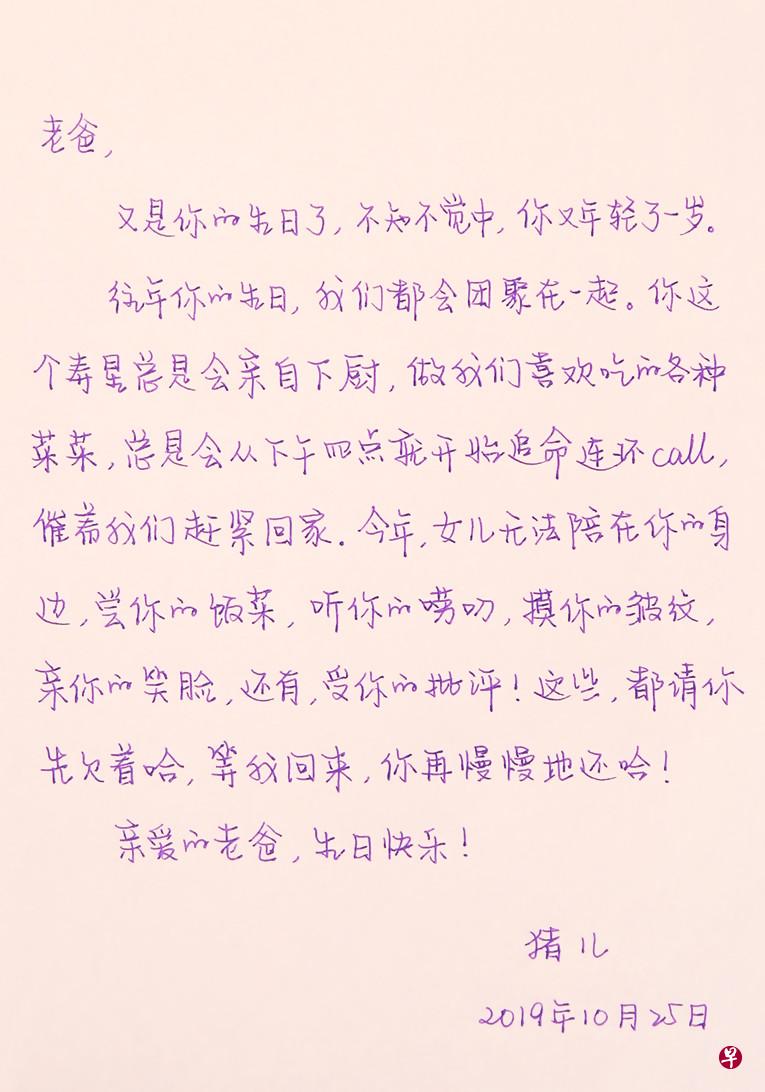 老爸,
又是你的生日了,不知不觉中,你又年轻了一岁。
往年你的生日,我们都会团聚在一起。你这
个寿星总是会亲自下厨,做我们喜欢吃的各种
菜菜,总是会从下午四点就开始追命连环call,
催着我们赶紧回家.今年,女儿无法陪在你的身
边,尝你的饭菜,听你的唠叨,摸你的皱纹,
亲你的笑脸,还有,受你的批评!这些,都请你
先欠着哈,等我回来,你再慢慢地还哈!
亲爱的老爸,生日快乐!
猪儿
2019年10月25日
早